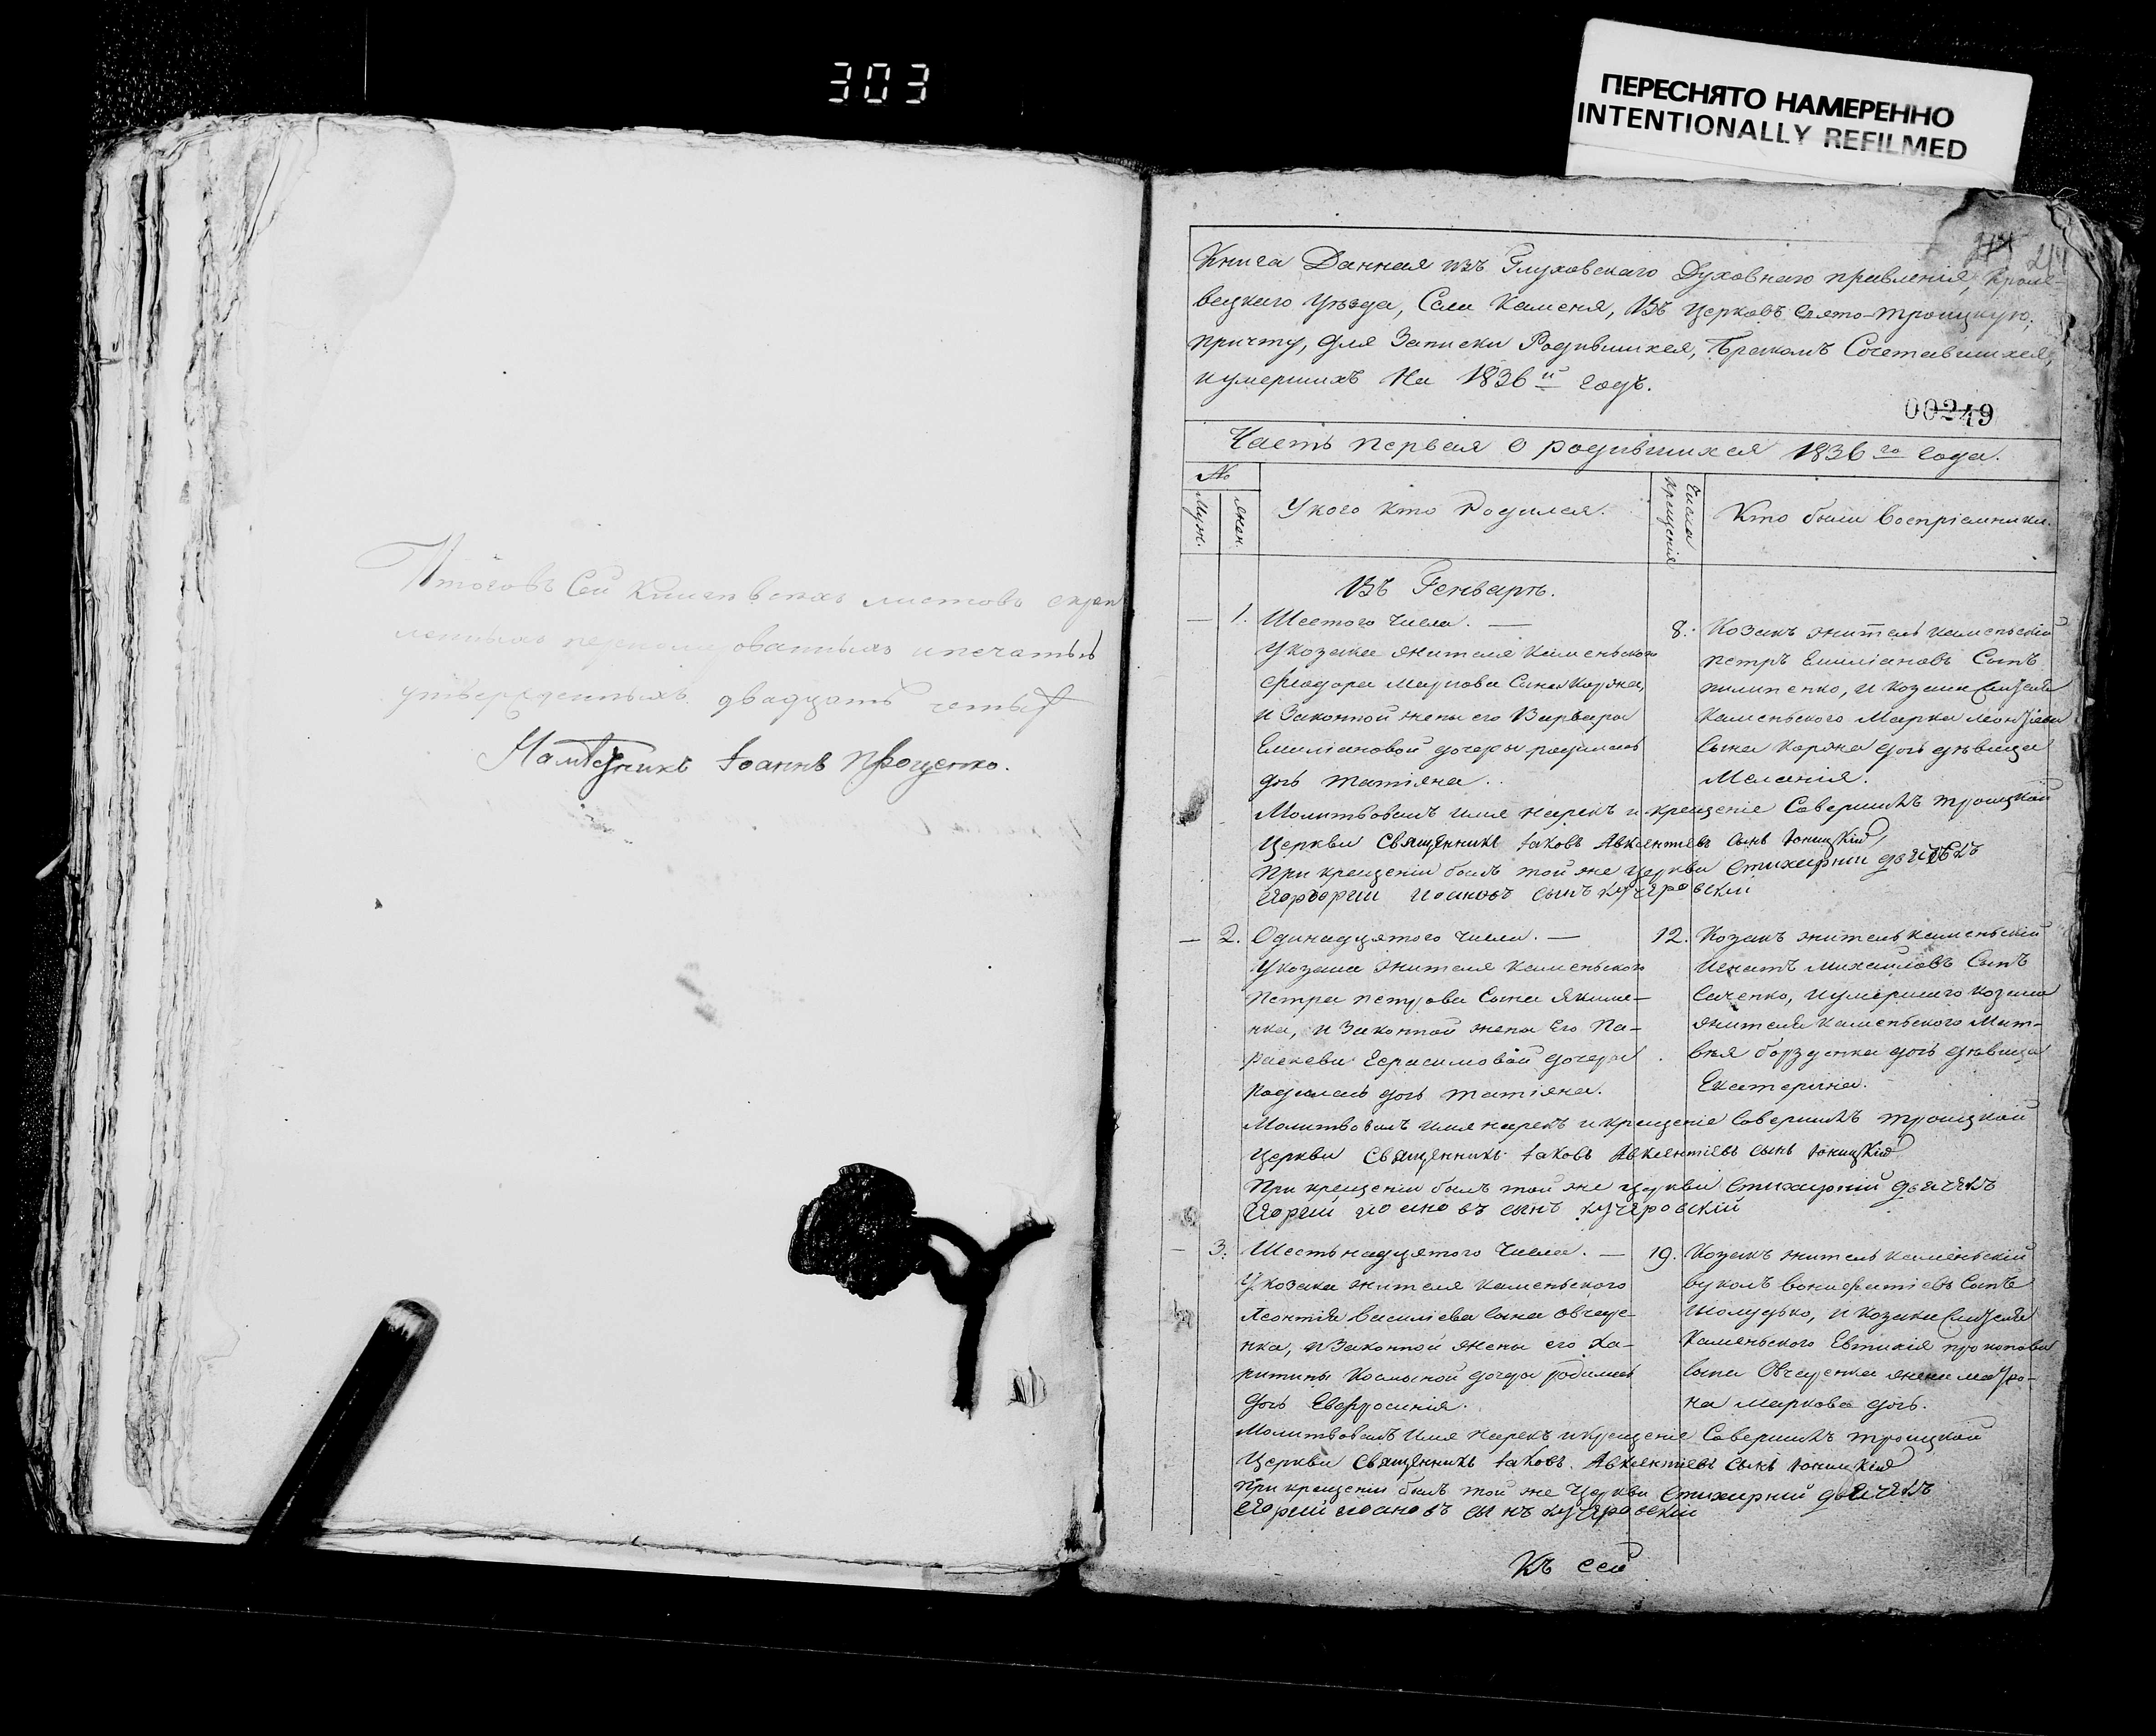 303
ПЕРЕСНЯТО НАМЕРЕННО
INTENTIONALLY REFILMED
Итого въ Сей Книге листовъ скреп
ленныхъ перенумерованныхъ и печатью
утвержденныхъ двадцать четыр
Наместникъ Іоаннъ Проценко.
214
Книга Данная изъ Глуховскаго Духовнаго правленія, Кроле-
вецкаго уѣзда, Села Каменя, Въ Церковъ Свято-Троицкую,
причту, для Записки Родившихся, Бракомъ Сочетавшихся,
иумершихъ На 1836й годъ.
00249
Часть первая О родившихся 1836го года.
№
Муж.
Жен.
У кого кто Родился.
Числа крещенія
Кто были Воспріемники.
Въ Генварѣ.
1. Шестого Числа. —
Укозака жителя Каменьского
Феодора Маркова Сына Коржа,
и Законной жены его Варвары
Емиліановой дочеры родилась
дочь Татіяна.
8. Козакъ житель каменьскій
петръ Емиліановъ Сынъ
пилипенко, и козака жителя
Каменьского Марка Леонтіева
Сына Коржа дочь дѣвица
Меланія.
Молитвовалъ имя нарекъ и крещеніе Совершилъ троицкой
Церкви Священникъ Іаковъ Авксентіевъ сынъ Іоницкій,
При крещеніи былъ той же церкви Стихарній дьячекъ
Іоановъ сынъ кучеровскій
— 2. Одинадцятого числа. —
Укозака жителя Каменьского
Петра петрова Сына Якиме-
нка, и Законной жены Его Па-
раскеви Герасимовой дочеры
родилась дочь татіяна.
12. Козакъ житель каменьскій
Игнатъ михаиловъ Сынъ
Саченко, иумершаго козака
жителя каменьского Мат-
вея борзденка дочь дѣвица
Екатерина.
Молитвовалъ имя нарекъ и крещеніе Совершилъ троицкой
Церкви Священникъ Іаковъ Авксентіевъ сынъ Іоницкій
При крещеніи былъ той же церкви Стихарній дьячекъ
Иоановъ сынъ кучеровскій
— 3. Шестьнадцятого Числа. —
Укозака жителя каменьского
Леонтія Василіева Сына Овчаре-
нка, и Законной жены его Ха-
ритины Косминой дочеры родилась
дочь Евфросинія.
19. Козакъ житель каменьскій
вуколъ вонифатіевъ Сынъ
шолудько, и козака жителя
Каменьского Евтихія прокопова
Сына Овчаренка жена матро-
на маркова дочь.
Молитвовалъ имя нарекъ икрещеніе Совершилъ троицкой
Церкви Священникъ Іаковъ Авксентіевъ сынъ Іоницкій
При крещеніи былъ той же Церкви Стихарній дьячекъ
иоановъ сынъ кучеровскій
Къ сей